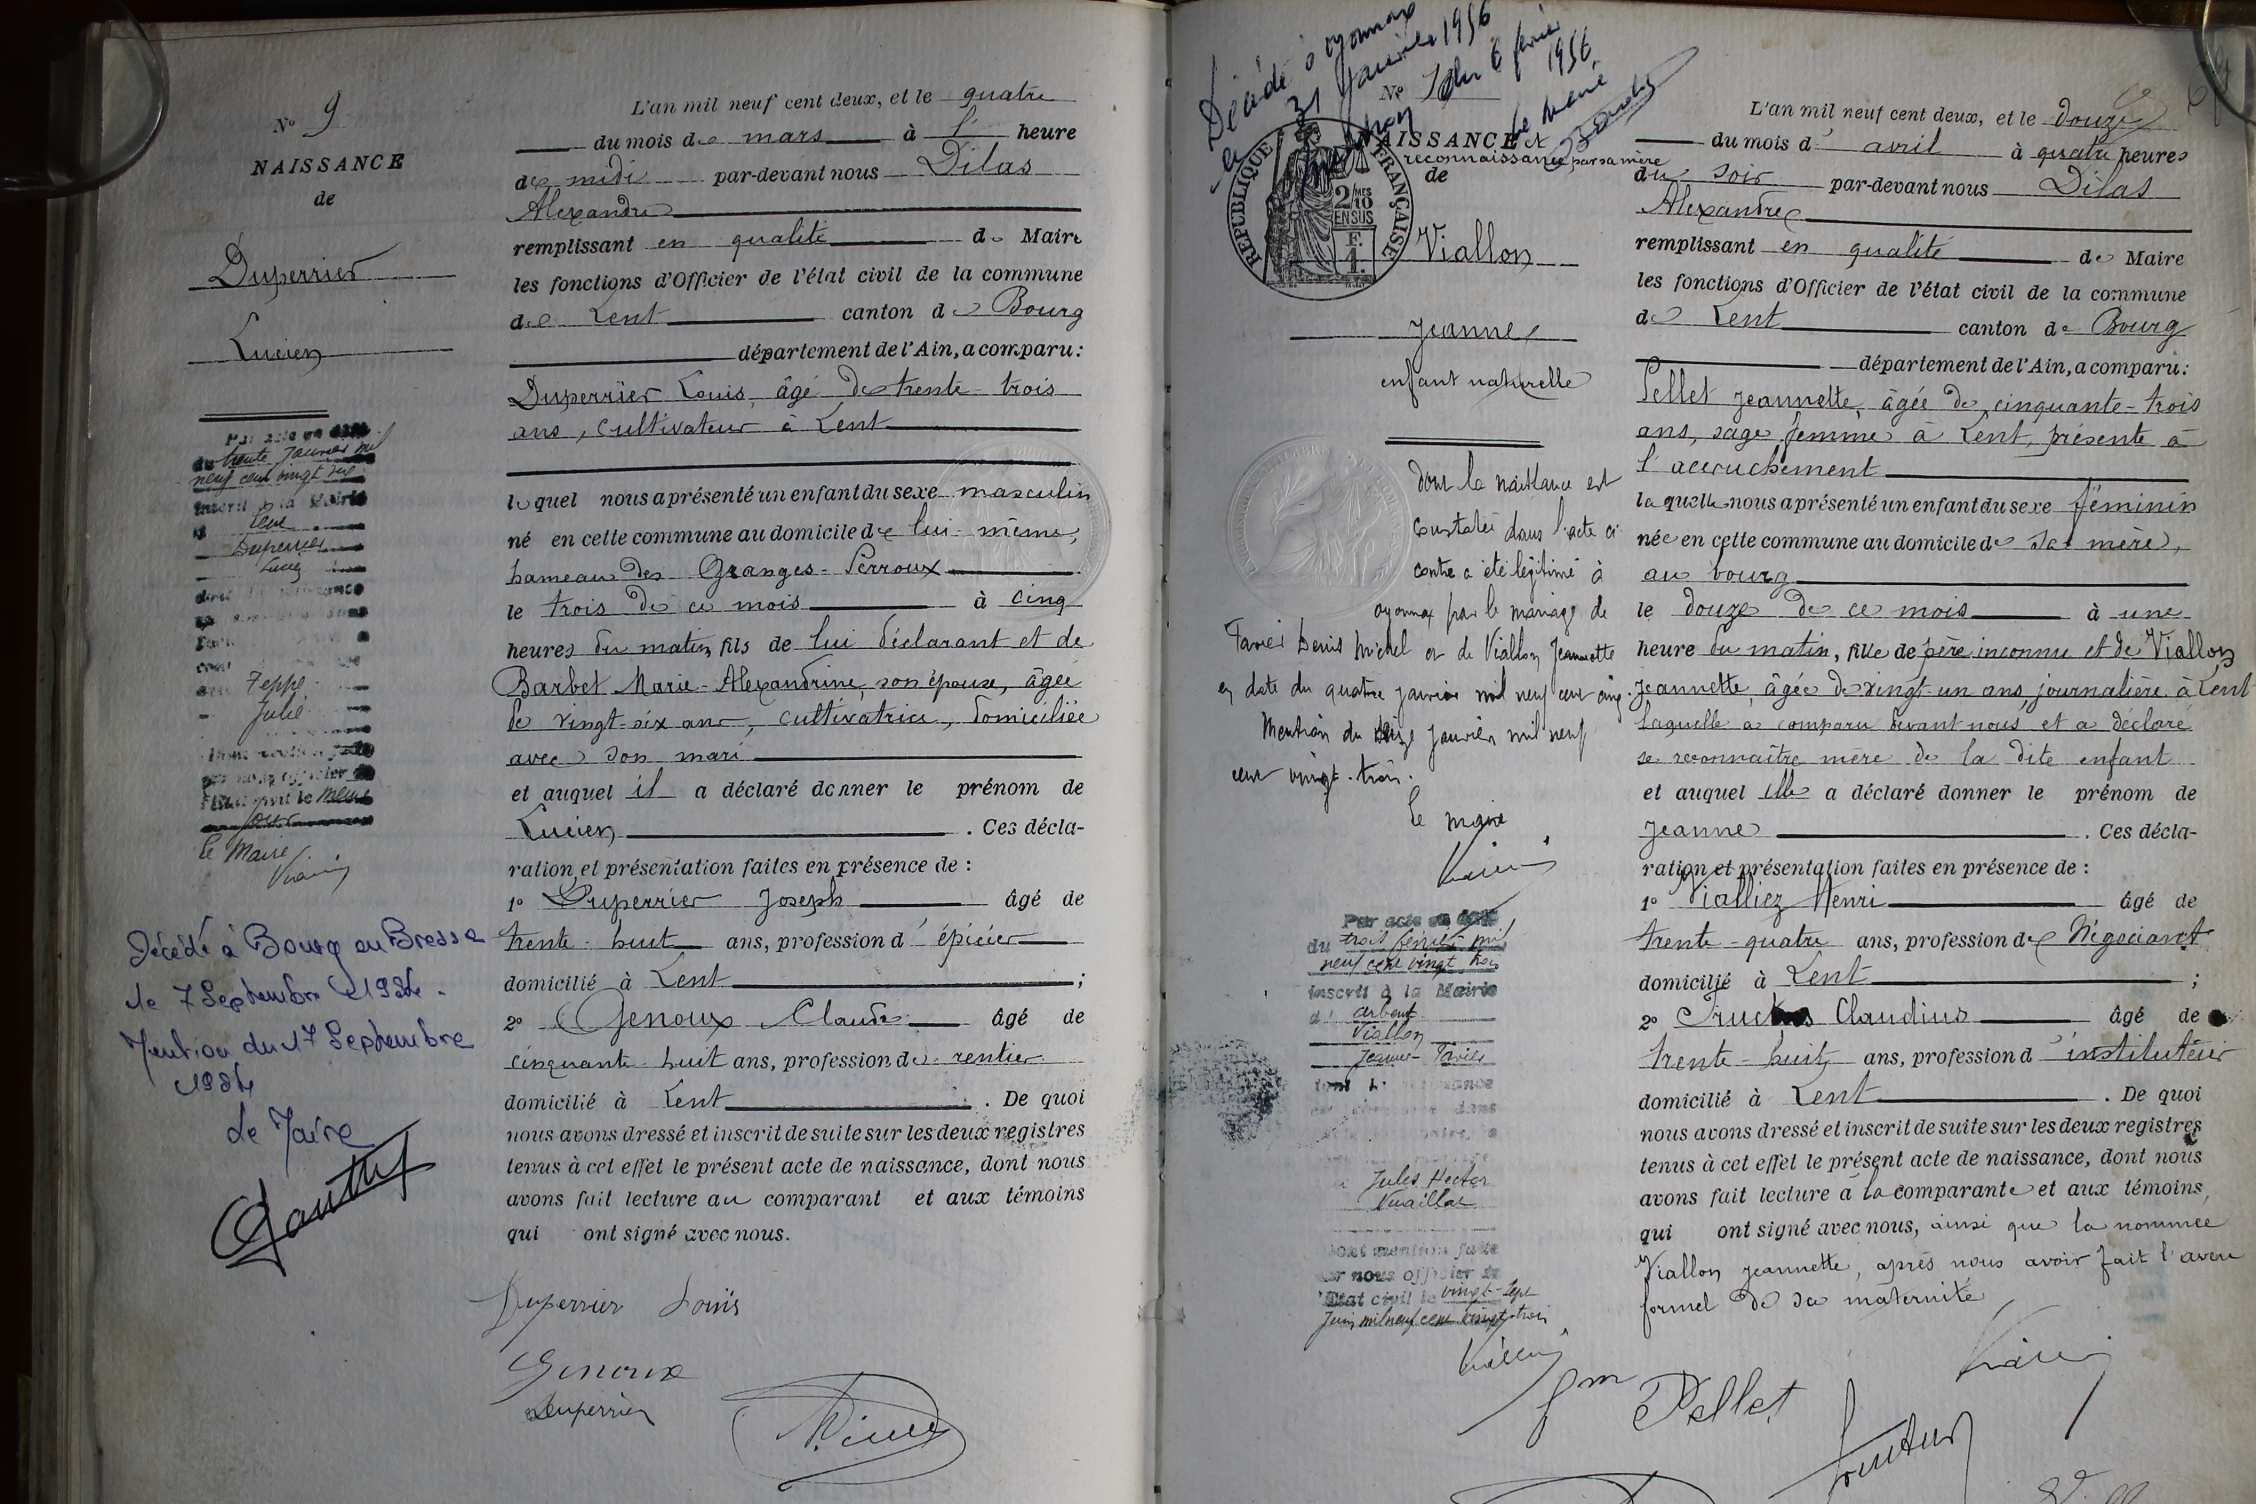 Nº 9
NAISSANCE
de
Duperrier
Lucien
Par acte en date
du trente Janvier mil
neuf cent vingt
inscrit à la Mairie
Lent
Duperrier
Lucien
Teppe
Julie
l'état civil le même
jour
le Maire
Décédé à Bourg en Bresse
le 7 Septembre 1984.
Mention du 17 Septembre
1984
Le Maire
L'an mil neuf cent deux, et le quatre
du mois de mars à l' heure
de midi par-devant nous Dilas
Alexandre
remplissant en qualité de Maire
les fonctions d'Officier de l'état civil de la commune
de Lent canton de Bourg
département de l'Ain, a comparu:
Duperrier Louis, âgé de trente-trois
ans, cultivateur à Lent
lequel nous a présenté un enfant du sexe masculin
né en cette commune au domicile de lui-même,
hameau des Granges-Perroux
le trois de ce mois à cinq
heures du matin, fils de lui déclarant et de
Barbet Marie-Alexandrine, son épouse, âgée
de vingt-six ans, cultivatrice, domiciliée
avec son mari
et auquel il a déclaré donner le prénom de
Lucien. Ces décla-
ration et présentation faites en présence de :
1º Duperrier Joseph âgé de
trente-huit ans, profession d' épicier
domicilié à Lent ;
2º Genoux Claude âgé de
cinquante-huit ans, profession de rentier
domicilié à Lent. De quoi
nous avons dressé et inscrit de suite sur les deux registres
tenus à cet effet le présent acte de naissance, dont nous
avons fait lecture au comparant et aux témoins
qui ont signé avec nous.
Duperrier Louis
Genoux
Duperrier
Décédé à oyonnax
31 Janvier 1956
du 6 février
1956
le Maire
Nº
NAISSANCE et
reconnaissance, par sa mère
de
RÉPUBLIQUE FRANÇAISE
2/10 MES
EN SUS
F.
1.
Viallon
Jeanne
enfant naturelle
dont la naissance est
constatée dans l'acte ci-
contre a été légitimé à
oyonnax par le mariage de
Tavier Denis Michel et de Viallon Jeannette
en date du quatre janvier mil neuf cent cinq.
Mention du seize janvier mil neuf
cent vingt-trois.
le maire
Par acte en date
du trois février mil
neuf cent vingt trois
inscrit à la Mairie
d' arbent
Viallon
Jeanne
Jules Hector
Vuaillat
dont mention faite
par nous officier de
l'État civil le vingt-sept
Juin mil neuf cent vingt-trois
L'an mil neuf cent deux, et le douze
du mois d' avril à quatre heures
du soir par-devant nous Dilas
Alexandre
remplissant en qualité de Maire
les fonctions d'Officier de l'état civil de la commune
de Lent canton de Bourg
département de l'Ain, a comparu:
Pellet Jeannette, âgée de cinquante-trois
ans, sage femme à Lent, présente à
l'accouchement
laquelle nous a présenté un enfant du sexe féminin
née en cette commune au domicile de sa mère,
au bourg
le douze de ce mois à une
heure du matin, fille de père inconnu et de Viallon
Jeannette, âgée de vingt-un ans, journalière à Lent
laquelle a comparu devant nous et a déclaré
se reconnaître mère de la dite enfant
et auquel elle a déclaré donner le prénom de
Jeanne. Ces décla-
ration et présentation faites en présence de :
1º Vialliez Henri âgé de
trente-quatre ans, profession de Négociant
domicilié à Lent ;
2º Claudius âgé de
trente-huit ans, profession d'instituteur
domicilié à Lent. De quoi
nous avons dressé et inscrit de suite sur les deux registres
tenus à cet effet le présent acte de naissance, dont nous
avons fait lecture à la comparante et aux témoins,
qui ont signé avec nous, ainsi que la nommée
Viallon Jeannette, après nous avoir fait l'aveu
formel de sa maternité
fm Pellet